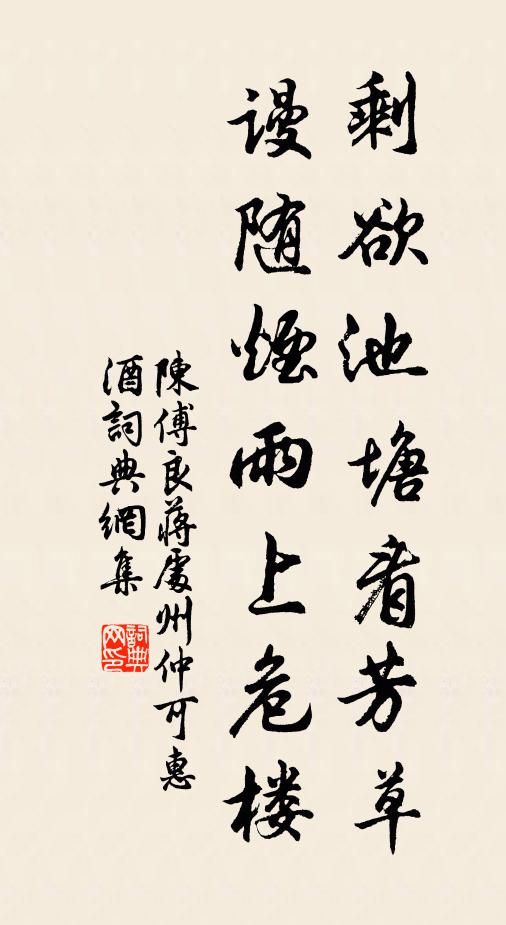 剩欲池塘看芳草
谩随烟雨上危楼
陳傅良蔣處州仲可惠
酒詞典網集
詞典
网印